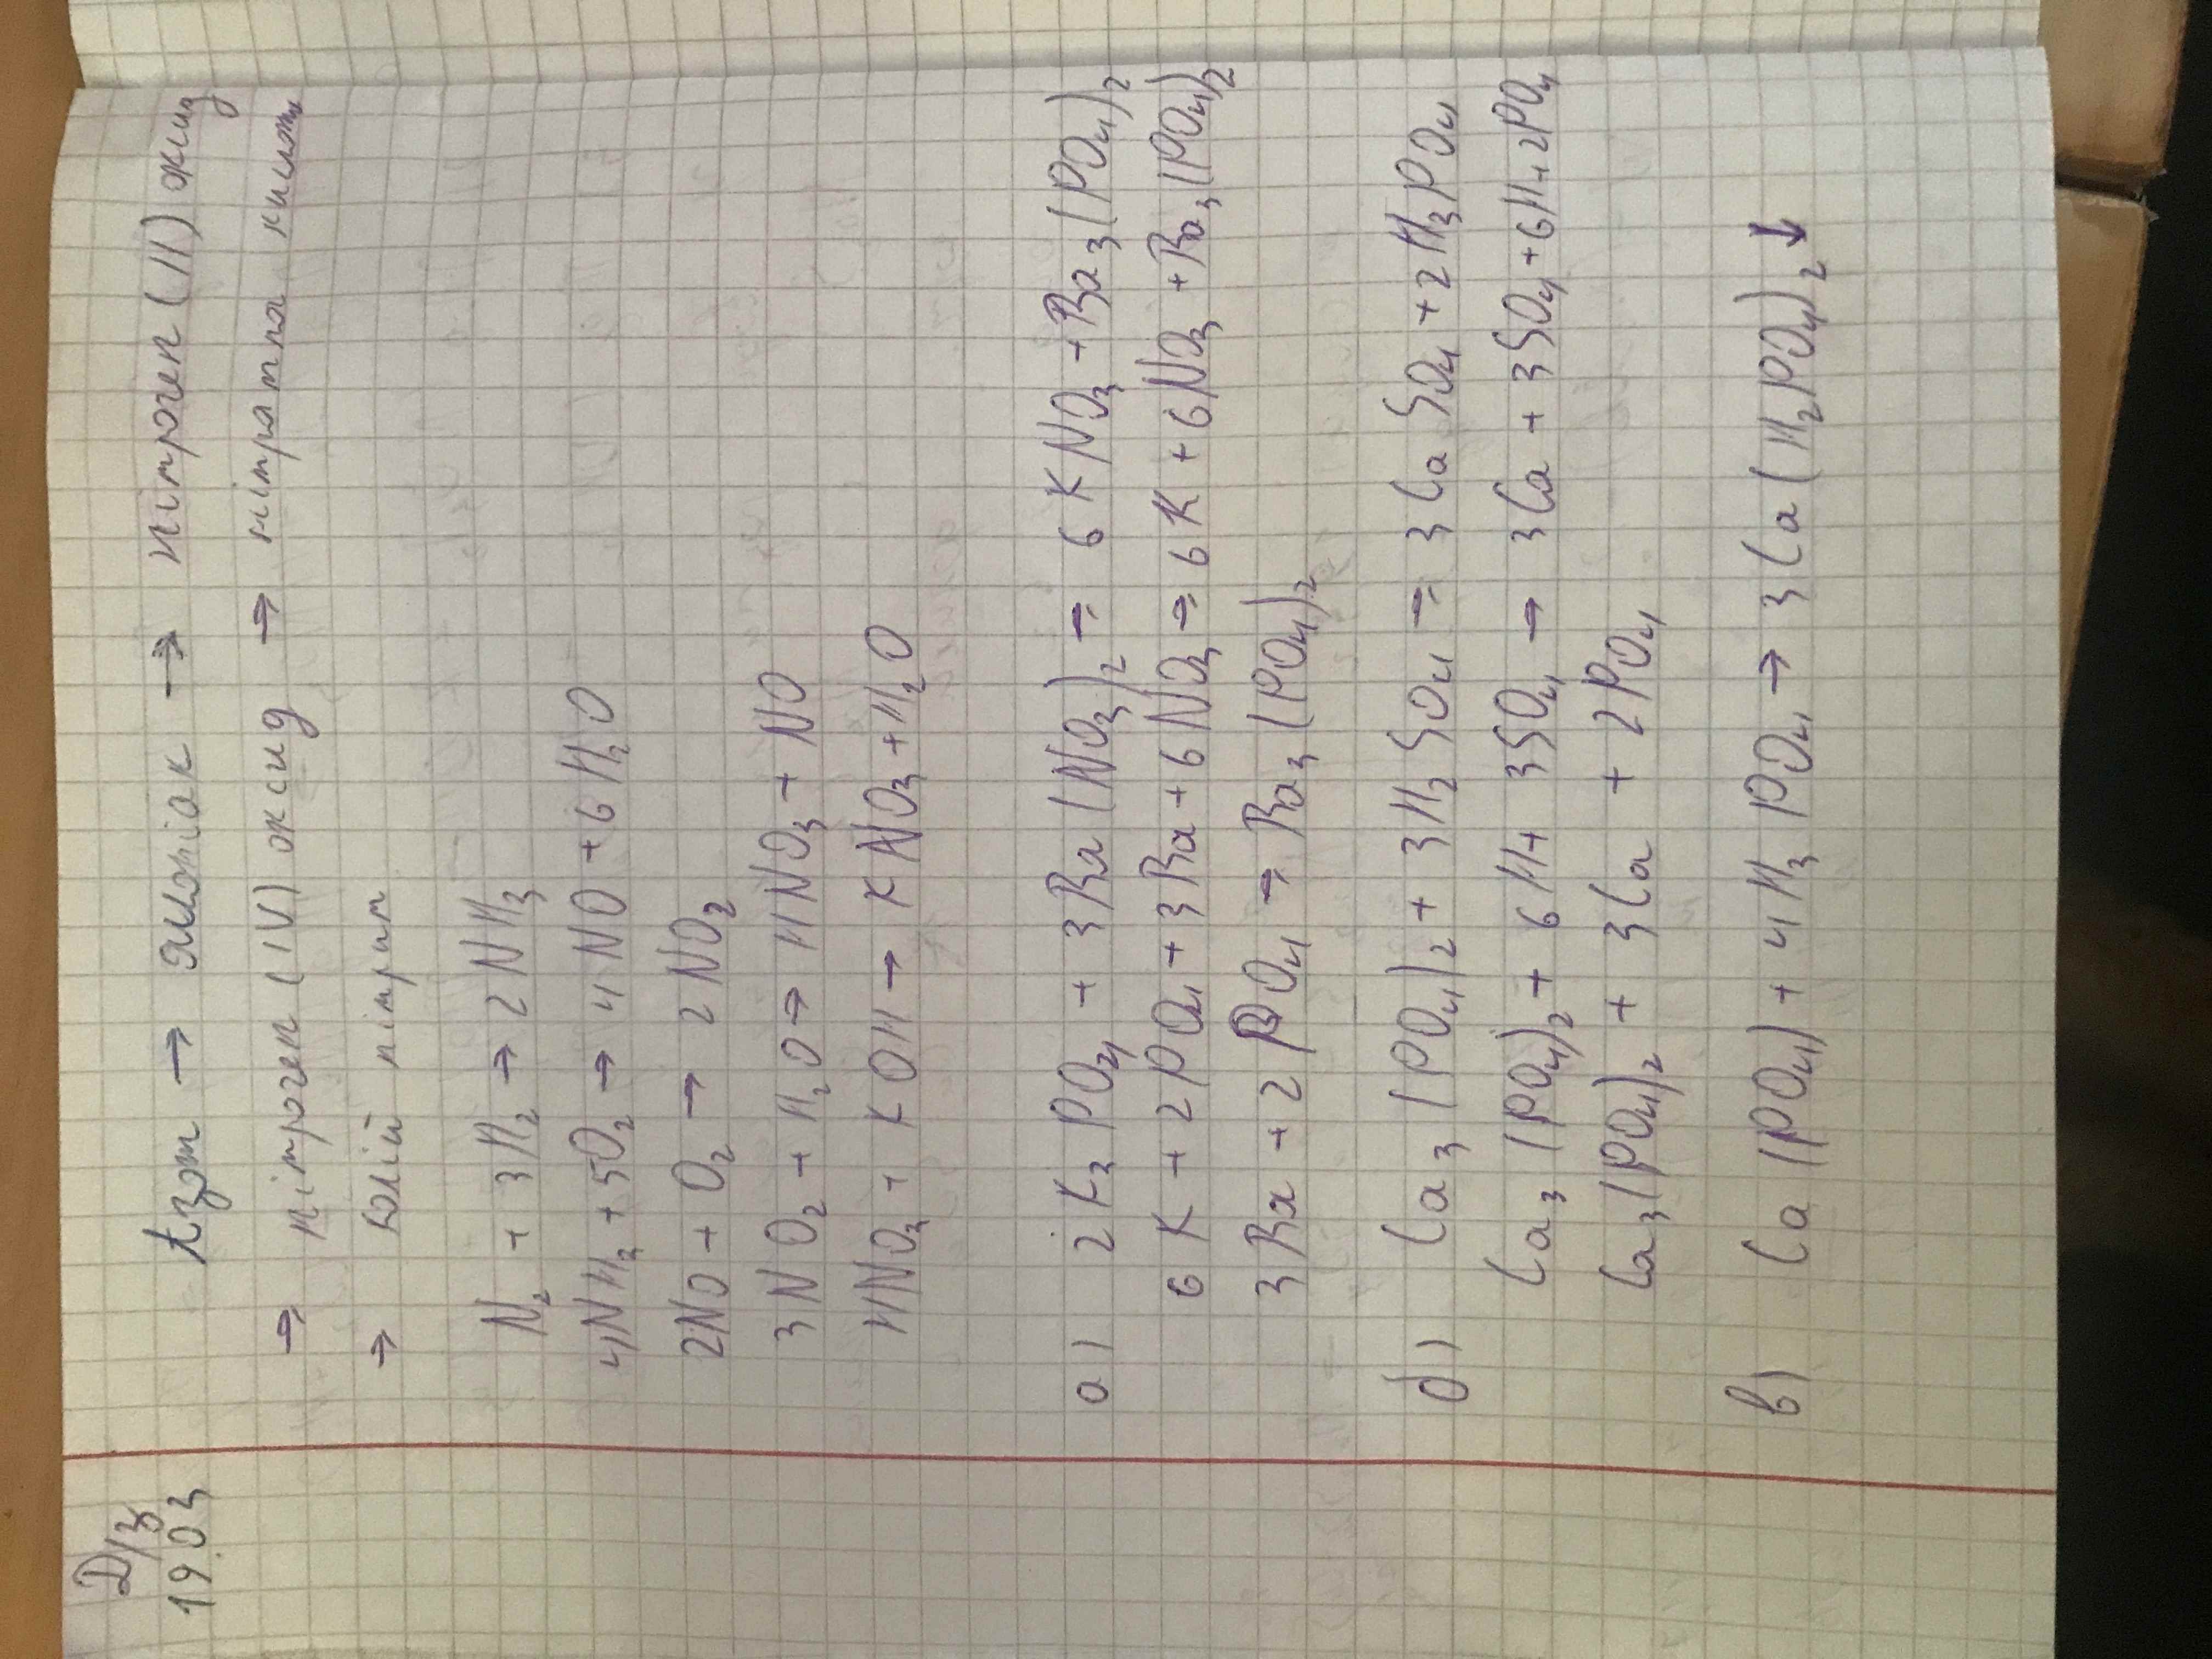 Д/з
19.03
Азот → амоніак → нітроген (II) оксид
→ нітроген (IV) оксид → нітратна кислота
→ калій нітрат
N₂ + 3H₂ → 2NH₃
4NH₃ + 5O₂ → 4NO + 6H₂O
2NO + O₂ → 2NO₂
3NO₂ + H₂O → HNO₃ + NO
HNO₃ + KOH → KNO₃ + H₂O
а) 2K₃PO₄ + 3Ba(NO₃)₂ → 6KNO₃ + Ba₃(PO₄)₂
6K + 2PO₄ + 3Ba + 6NO₃ → 6K + 6NO₃ + Ba₃(PO₄)₂
3Ba + 2PO₄ → Ba₃(PO₄)₂
б) Ca₃(PO₄)₂ + 3H₂SO₄ → 3CaSO₄ + 2H₃PO₄
Ca₃(PO₄)₂ + 6H + 3SO₄ → 3Ca + 3SO₄ + 6H + 2PO₄
Ca₃(PO₄)₂ + 3Ca + 2PO₄
в) Ca(PO₄) + 4H₃PO₄ → 3Ca(H₂PO₄)₂↓